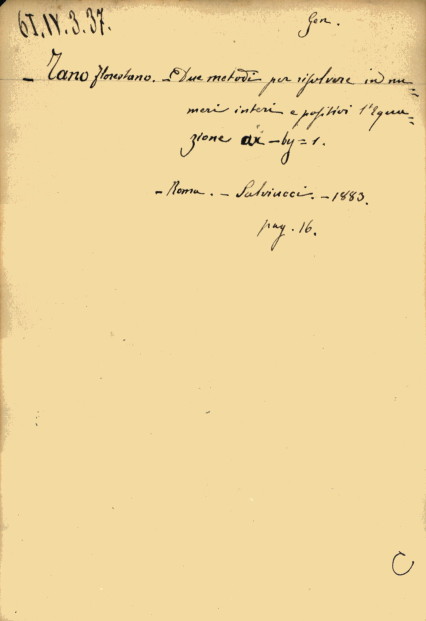 61.IV.3.37.
Gen.
– Tano Florestano. – Due metodi per risolvere in nu=
meri interi e positivi l'Equa=
zione ax – by = 1.
– Roma. – Salviucci. – 1883.
pag. 16.
C